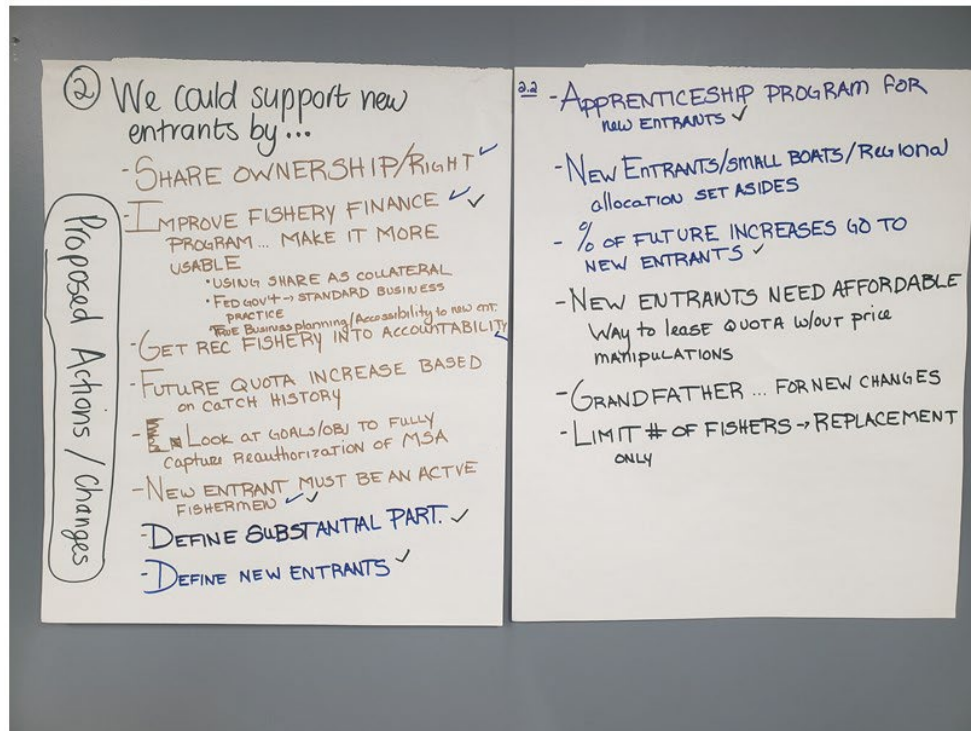 ② We could support new
entrants by...
Proposed Actions / Changes
- SHARE OWNERSHIP/RIGHT ✓
- IMPROVE FISHERY FINANCE ✓✓
PROGRAM... MAKE IT MORE
USABLE
• USING SHARE AS COLLATERAL
• FED GOV'T → STANDARD BUSINESS
PRACTICE
TRUE Business planning/Accessibility to new ent.
- GET REC FISHERY INTO ACCOUNTABILITY ✓
- FUTURE QUOTA INCREASE BASED
on CATCH HISTORY
- LOOK AT GOALS/OBJ TO FULLY
Capture Reauthorization of MSA
- NEW ENTRANT MUST BE AN ACTVE
FISHERMEN ✓✓
- DEFINE SUBSTANTIAL PART. ✓
- DEFINE NEW ENTRANTS ✓
2.2 - APPRENTICESHIP PROGRAM FOR
new ENTRANTS ✓
- NEW ENTRANTS/SMALL BOATS/REGIONAL
allocation SET ASIDES
- % OF FUTURE INCREASES GO TO
NEW ENTRANTS ✓
- NEW ENTRANTS NEED AFFORDABLE
Way to lease QUOTA w/out price
manipulations
- GRANDFATHER ... FOR NEW CHANGES
- LIMIT # OF FISHERS → REPLACEMENT
ONLY